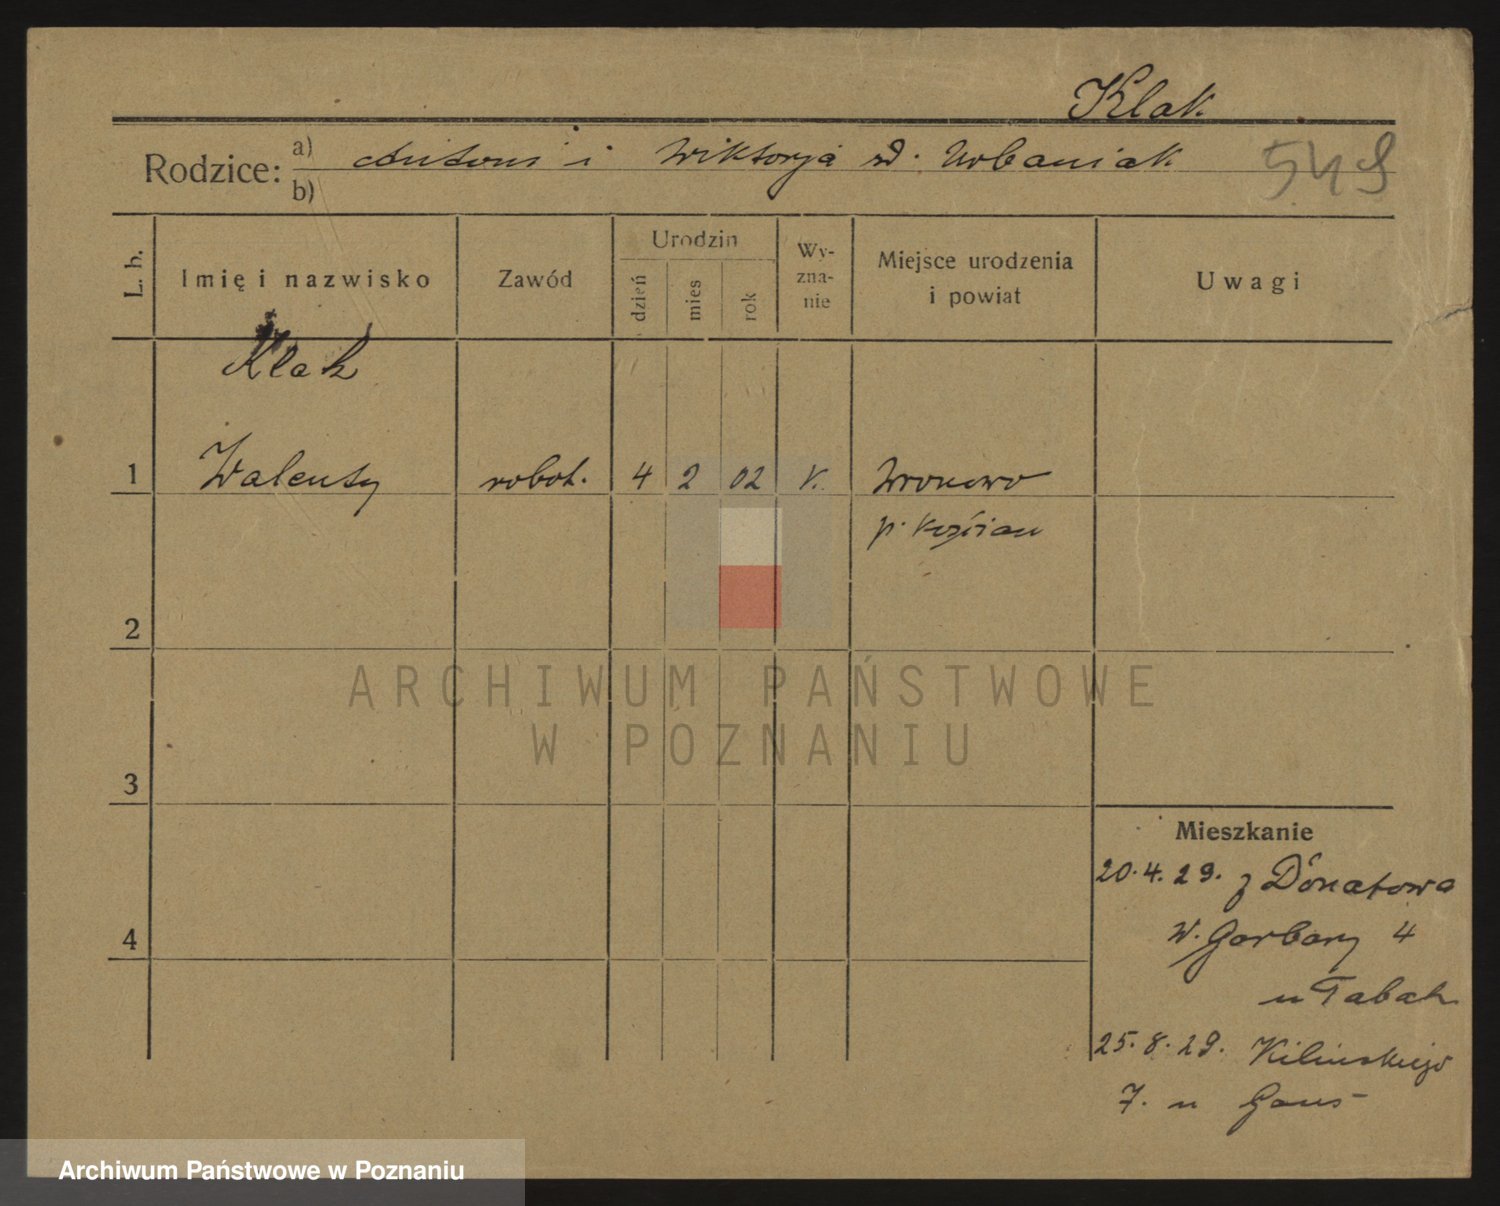 Klak
Rodzice: a) Antoni i Wiktorja zd. Urbaniak
b)
549
L. b.
Imię i nazwisko
Zawód
Urodzin
dzień
mies
rok
Wy-
zna-
nie
Miejsce urodzenia
i powiat
Uwagi
Klak
1 Walenty robot. 4 2 02 k. Wronowo
p. Kościan
2
ARCHIWUM PAŃSTWOWE
W POZNANIU
3
Mieszkanie
20.4.29. z Donatowa
4
W. Garbary 4
u Tabak
25.8.29. Kilinskiego
7. u Gans
Archiwum Państwowe w Poznaniu